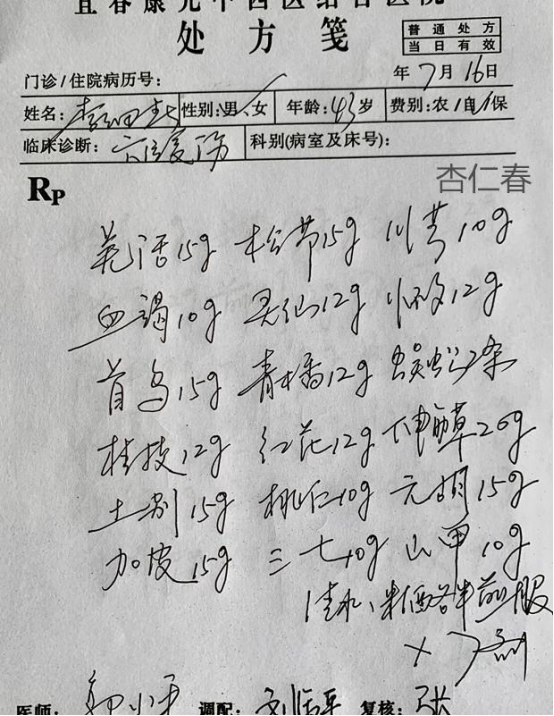 宜春康尤中西医结合医院
处方笺
普通处方
当日有效
门诊/住院病历号: 年7月16日
姓名: 性别:男、女 年龄:43岁 费别:农/自/保
临床诊断: 科别(病室及床号):
RP
杏仁春
羌活15g 松节15g 川芎10g
血竭10g 灵仙12g 12g
首乌15g 青风12g 蜈蚣2条
桂枝12g 红花12g 伸筋草20g
土别15g 桃仁10g 元胡15g
加皮15g 三七10g 山甲10g
水、米酒各半煎服
×7剂
医师: 调配: 复核:张